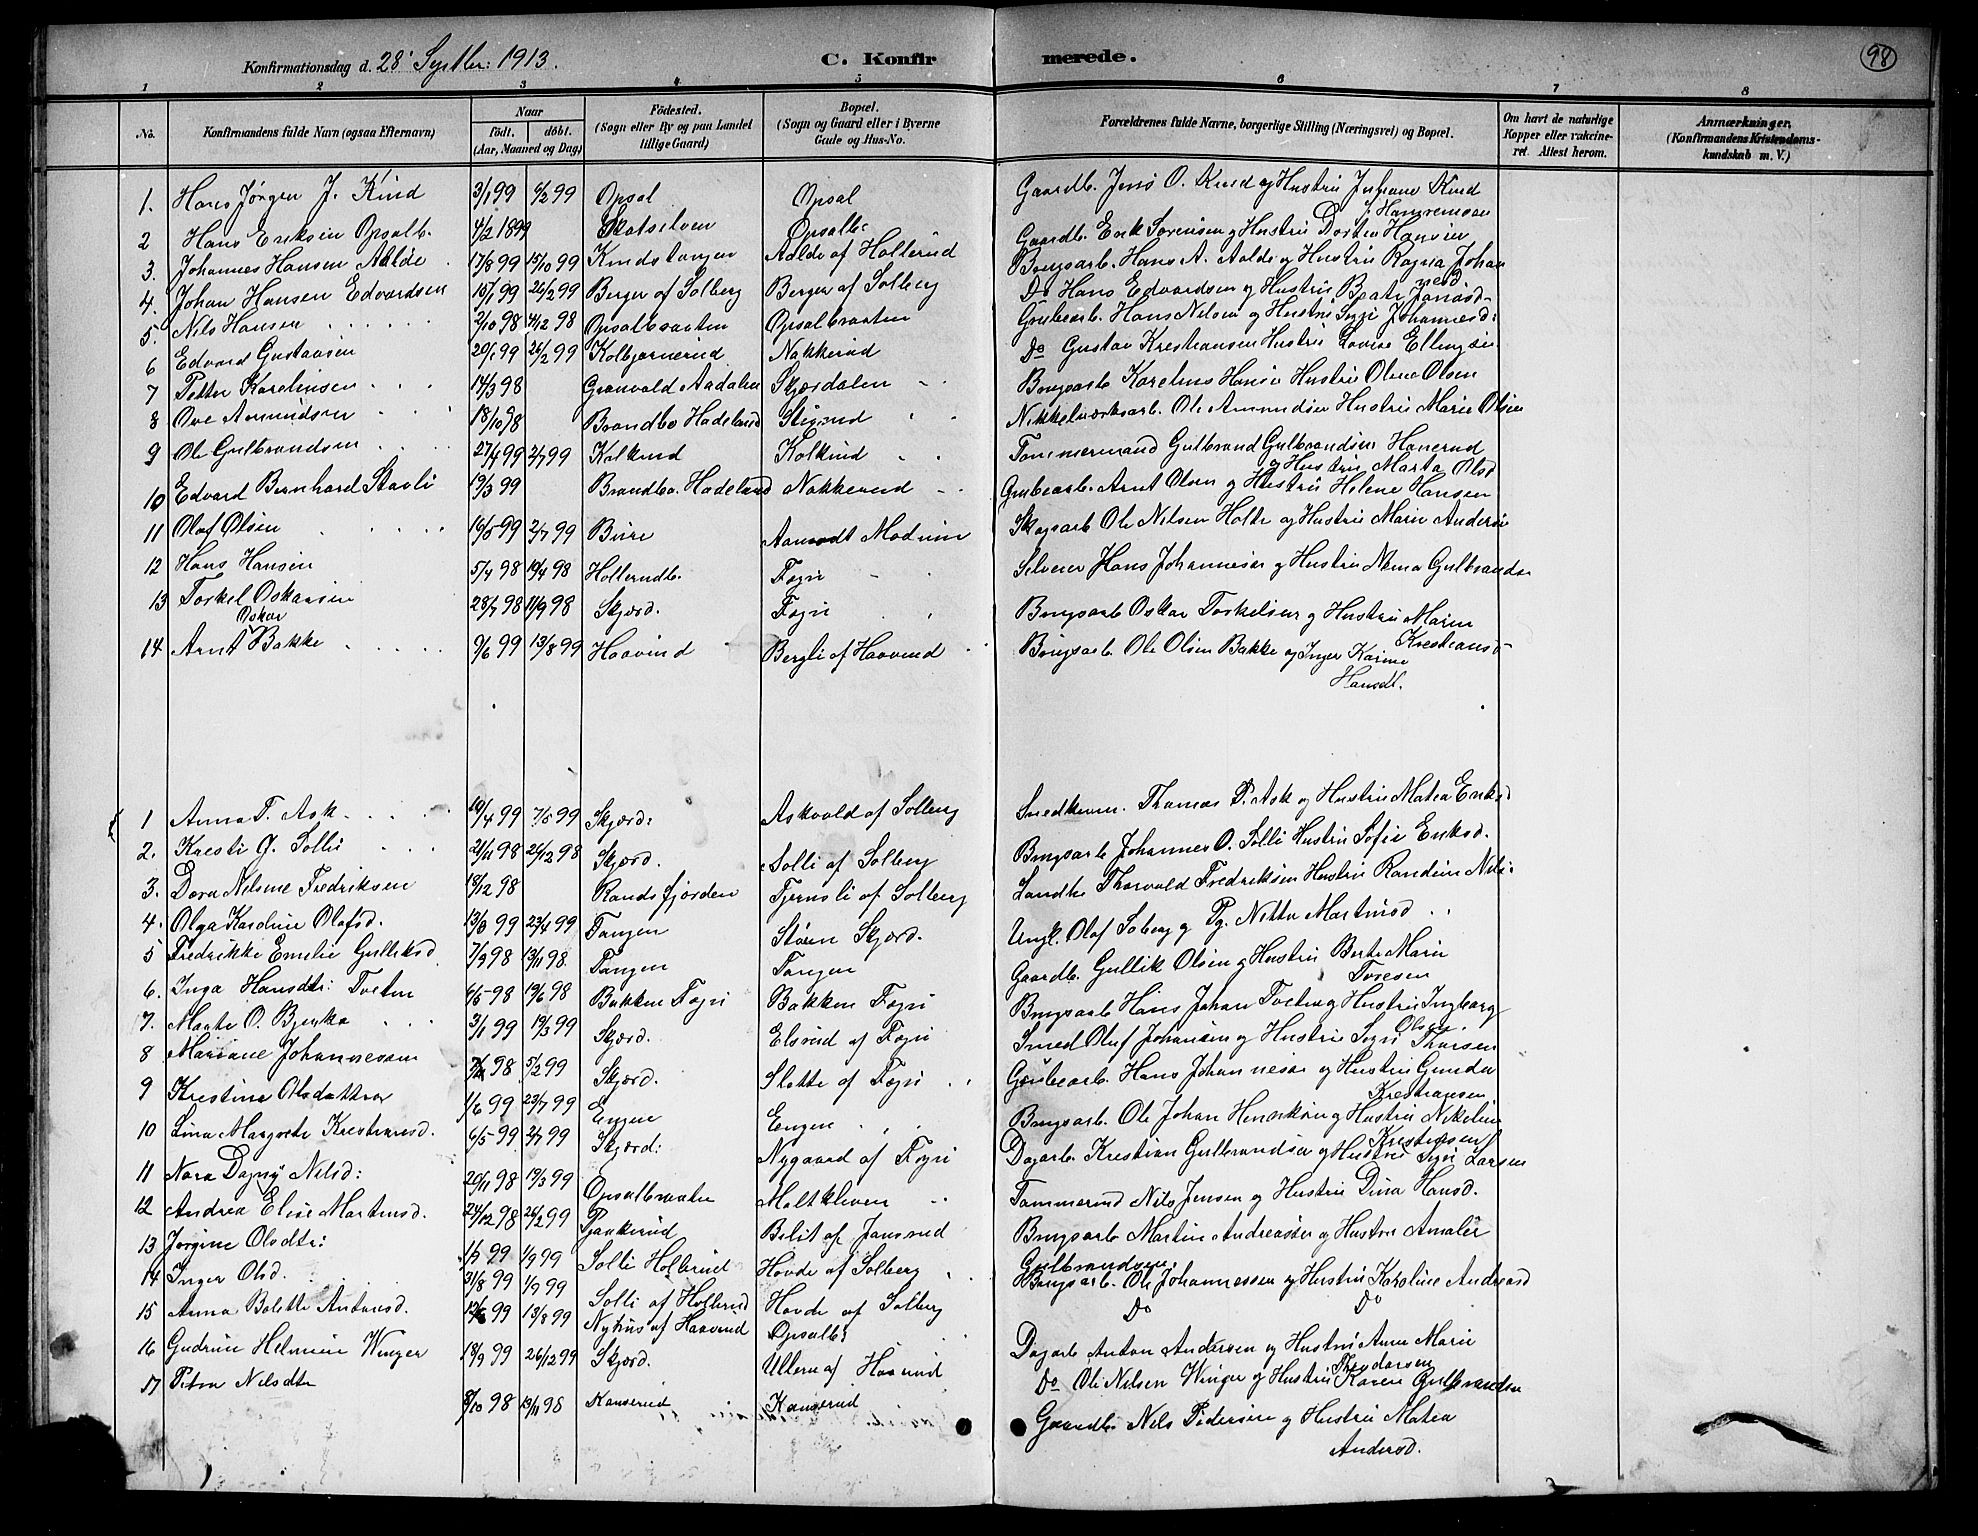 98
Konfirmationsdag d. 28' Septbr: 1913. C. Konfirmerede.
1 2 3 4 5 6 7 8
No. Konfirmandens fulde Navn (ogsaa Efternavn) Naar født. døbt. (Aar, Maaned og Dag) Födested. (Sogn eller By og paa Landet tillige Gaard) Bopæl. (Sogn og Gaard eller i Byerne Gade og Hus-No. Forældrenes fulde Navne, borgerlige Stilling (Næringsvei) og Bopæl. Om havt de naturlige Kopper eller vakcineret. Attest herom. Anmærkninger. (Konfirmandens Kristendomskundskab m. V.)
1. Hans Jørgen J. Kind 3/1 99 6/2 99 Opsal Opsal Gaardb. Jens O. Kind og Hustru Juliane Kind
2 Hans Eriksen Opsalb. 4/2 1899 Skotselven Opsalb: Gaardb. Erik Sørensen og Hustru Dortea Hansen
3. Johannes Hansen Aalde 17/8 99 15/10 99 Kindstangen Aalde af Hollerud Brugsarb. Hans A. Aalde og Hustru Ragna Johannesd
4. Johan Hansen Edvardsen 15/1 99 26/2 99 Berger af Solberg Berger af Solberg Do Hans Edvardsen og Hustru Beate Jonasd-
5. Nils Hansen 2/10 98 4/12 98 Opsalbraaten Opsalbraaten Grubearb. Hans Nilsen og Hustru Siri Johannesd:
6 Edvard Gustavsen 20/1 99 26/2 99 Kolbjørnerud Nakkerud Do Gustav Krestiansen Hustru Lovise Ellingsen
7 Petter Karelinsen 14/3 98 Granvold Aadalen Skjærdalen Brugsarb Karelius Hansen Hustru Oline Olsen
8 Ove Amundsen 18/10 98 Brandbo Hadeland Stixrud Nikkelværksarb. Ole Amundsen Hustru Marie Olsen
9 Ole Gulbrandsen 27/4 99 2/7 99 Kolkind Kolkind Tømmermand Gulbrand Gulbrandsen Hanerud og Hustru Marta Olsd
10 Edvard Bernhard Stavli 19/3 99 Brandbo. Hadeland Nakkerud Grubearb. Arnt Olsen og Hustru Helene Hansen
11 Olaf Olsen 16/5 99 2/7 99 Bure Aamodt Modum Skogsarb Ole Nilsen Holte og Hustru Marie Anders
12 Hans Hansen 5/4 98 19/4 98 Hollerudb. Fægri Selveier Hans Johannesen og Hustru Nema Gulbrands
13 Torkel Oskarsen 28/7 98 11/9 98 Skjærd. Fægri Brugsarb Oskar Torkelsen og Hustru Maren Krestiansd-
14 Arnt Oskar Bakke 9/6 99 13/8 99 Haavind Bergli af Haavind Brugsarb. Ole Olsen Bakke og Inger Karine Hansdt.
1 Anna T. Ask 19/4 99 7/5 99 Skjærd: Askvold af Solberg Snedkerm. Thomas P. Ask og Hustru Matea Eriksd
2. Kresti G. Solli 21/11 98 26/12 98 Skjærd. Solli af Solberg Brugsarb Johannes O. Solli Hustru Sofie Eriksd.
3. Dora Nelsine Fredriksen 18/12 98 Randsfjorden Tjernsli af Solberg Landh. Thorvald Fredriksen Hustru Randine Nils.
4. Olga Karoline Olafsd. 13/3 99 23/4 99 Tangen Støen Skjærd. Ungk. Olaf Soberg og Pg. Netta Martinsd
5 Fredrikke Emelie Gulliksd 7/9 98 13/11 98 Tangen Tangen Gaardb. Gullik Olsen og Hustru Berte Marie Toresen
6. Inga Hansdtr: Tveten 6/5 98 19/6 98 Bakken Fægri Bakken Fægri Brugsarb Hans Johan Tveten og Hustru Ingborg Olsen.
7. Marte O. Bjerke 3/1 99 19/3 99 Skjærd. Elsrud af Fægri Smed Oluf Johansen og Hustru Siri Thorsen
8 Mariane Johannessen 98 5/2 99 Skjærd. Slette af Fægri Grubearb. Hans Johannesen og Hustru Gunda Krestiansen
9 Krestine Olsdatter 1/6 99 23/7 99 Engen Engen Brugsarb. Ole Johan Henriksen og Hustru Nikeline Krestensen
10 Lina Margrete Krestiansd. 6/5 99 2/7 99 Skjærd: Nygaard af Fægri Dagarb. Krestian Gulbrandsen og Hustru Siri Larsen
11 Nora Dagny Nilsd: 20/11 98 19/3 99 Opsalbraaten Moltkleven Tømmermd Nils Jensen og Hustru Dina Hansd.
12 Andrea Elise Martinsd. 24/12 98 26/2 99 Tjankerud Belit af Jansrud Brugsarb Martin Andreassen og Hustru Amalie Gulbrandsen.
13 Jørgine Olsdtr: 1/7 99 1/9 99 Solli Hollerud Hovde af Solberg Brugsarb. Ole Johannessen og Hustru Karoline Andersd
14 Inger Olsd. 31/8 99 1/9 99 Solli af Hollerud Hovde af Solberg Do Do
15 Anna Bolette Antonsd. 99 13/8 99 Nyhus af Haavind Opsalb: Dagarb Anton Andersen og Hustru Anne Marie Theodorsen
16 Gudrun Helmine Winger 18/9 99 26/12 99 Skjærd. Ullern af Haavind Do Ole Nilsen Winger og Hustru Karen Gulbrandsen
17 Petra Nilsdtr 8/10 98 13/11 98 Kanserud Kanserud Gaardb. Nils Pedersen og Hustru Matea Andersd.